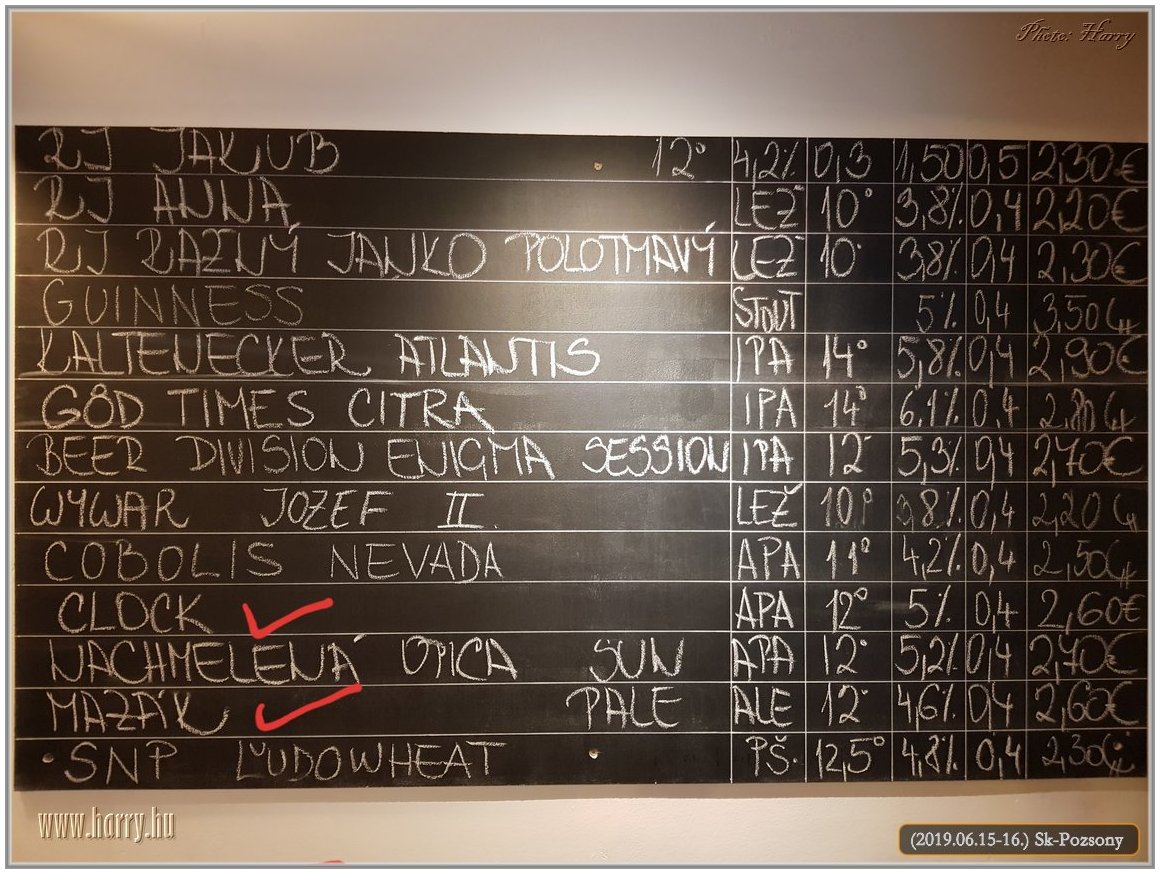 Photo: Harry
RJ JAKUB 12° 4,2% 0,3 1,50 0,5 2,30€
RJ ANNA LEŽ 10° 3,8% 0,4 2,20€
RJ RAZNÝ JANKO POLOTMAVÝ LEŽ 10° 3,8% 0,4 2,30€
GUINNESS STOUT 5% 0,4 3,50€
KALTENECKER ATLANTIS IPA 14° 5,8% 0,4 2,90€
GÔD TIMES CITRA IPA 14° 6,1% 0,4 2,80€
BEER DIVISION ENIGMA SESSION IPA 12° 5,3% 0,4 2,70€
WYWAR JOZEF II. LEŽ 10° 3,8% 0,4 2,20€
COBOLIS NEVADA APA 11° 4,2% 0,4 2,50€
CLOCK APA 12° 5% 0,4 2,60€
NACHMELENÁ OPICA SUN APA 12° 5,2% 0,4 2,70€
MAZÁK PALE ALE 12° 4,6% 0,4 2,60€
SNP ĽUDOWHEAT PŠ. 12,5° 4,8% 0,4 2,30€
www.harry.hu
(2019.06.15-16.) Sk-Pozsony